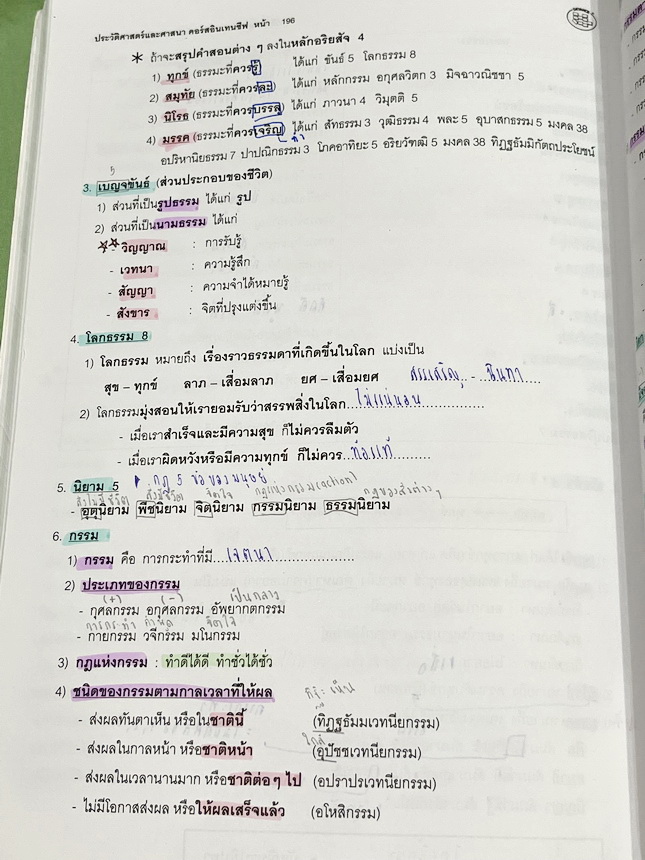 ประวัติศาสตร์และศาสนา คอร์สอินเทนซีฟ หน้า 196
* ถ้าจะสรุปคำสอนต่าง ๆ ลงในหลักอริยสัจ 4
1) ทุกข์ (ธรรมะที่ควรรู้) ได้แก่ ขันธ์ 5 โลกธรรม 8
2) สมุทัย (ธรรมะที่ควรละ) ได้แก่ หลักกรรม อกุศลวิตก 3 มิจฉาวณิชชา 5
3) นิโรธ (ธรรมะที่ควรบรรลุ) ได้แก่ ภาวนา 4 วิมุตติ 5
4) มรรค (ธรรมะที่ควรเจริญ) ได้แก่ สัทธรรม 3 วุฒิธรรม 4 พละ 5 อุบาสกธรรม 5 มงคล 38
ทำ
อปริหานิยธรรม 7 ปาปณิกธรรม 3 โภคอาทิยะ 5 อริยวัฑฒิ 5 มงคล 38 ทิฏฐธัมมิกัตถประโยชน์
5
3. เบญจขันธ์ (ส่วนประกอบของชีวิต)
1) ส่วนที่เป็นรูปธรรม ได้แก่ รูป
2) ส่วนที่เป็นนามธรรม ได้แก่
- วิญญาณ : การรับรู้
- เวทนา : ความรู้สึก
- สัญญา : ความจำได้หมายรู้
- สังขาร : จิตที่ปรุงแต่งขึ้น
4. โลกธรรม 8
1) โลกธรรม หมายถึง เรื่องราวธรรมดาที่เกิดขึ้นในโลก แบ่งเป็น
สุข – ทุกข์ ลาภ – เสื่อมลาภ ยศ – เสื่อมยศ สรรเสริญ - นินทา
2) โลกธรรมมุ่งสอนให้เรายอมรับว่าสรรพสิ่งในโลก...ไม่แน่นอน...
- เมื่อเราสำเร็จและมีความสุข ก็ไม่ควรลืมตัว
- เมื่อเราผิดหวังหรือมีความทุกข์ ก็ไม่ควร...ท้อแท้...
5. นิยาม 5 กฎ 5 ข้อของมนุษย์
สิ่งไม่มีชีวิต สิ่งมีชีวิต จิตใจ กฎแห่งกรรม (action) กฎของสิ่งต่างๆ
- อุตุนิยาม พืชนิยาม จิตนิยาม กรรมนิยาม ธรรมนิยาม
6. กรรม
1) กรรม คือ การกระทำที่มี...เจตนา...
2) ประเภทของกรรม
(+) (-) เป็นกลาง
- กุศลกรรม อกุศลกรรม อัพยากตกรรม
การกระทำ คำพูด จิตใจ
- กายกรรม วจีกรรม มโนกรรม
3) กฎแห่งกรรม : ทำดีได้ดี ทำชั่วได้ชั่ว
4) ชนิดของกรรมตามกาลเวลาที่ให้ผล
- ส่งผลทันตาเห็น หรือในชาตินี้ (ทิฏฐธัมมเวทนียกรรม)
ใกล้
- ส่งผลในกาลหน้า หรือชาติหน้า (อุปัชชเวทนียกรรม)
- ส่งผลในเวลานานมาก หรือชาติต่อๆ ไป (อปราปรเวทนียกรรม)
- ไม่มีโอกาสส่งผล หรือให้ผลเสร็จแล้ว (อโหสิกรรม)